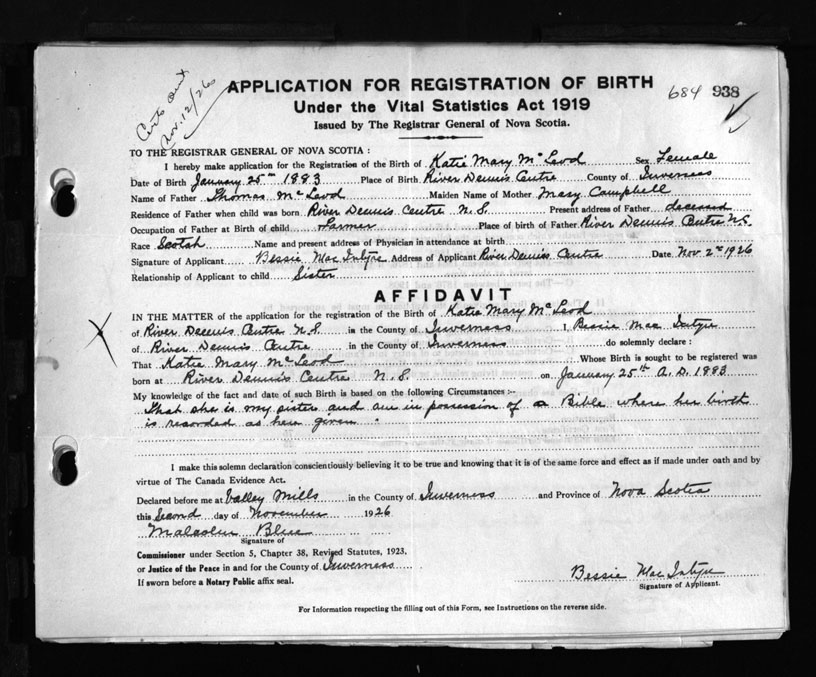 Certs out
Nov. 12/26
APPLICATION FOR REGISTRATION OF BIRTH
684 938
Under the Vital Statistics Act 1919
Issued by The Registrar General of Nova Scotia.
TO THE REGISTRAR GENERAL OF NOVA SCOTIA :
I hereby make application for the Registration of the Birth of Katie Mary McLeod Sex Female
Date of Birth January 25th 1883 Place of Birth River Dennis Centre County of Inverness
Name of Father Thomas McLeod Maiden Name of Mother Mary Campbell
Residence of Father when child was born River Dennis Centre N.S. Present address of Father deceased
Occupation of Father at Birth of child Farmer Place of birth of Father River Dennis Centre N.S.
Race Scotch Name and present address of Physician in attendance at birth
Signature of Applicant Bessie MacIntyre Address of Applicant River Dennis Centre Date Nov 2nd 1926
Relationship of Applicant to child Sister
AFFIDAVIT
IN THE MATTER of the application for the registration of the Birth of Katie Mary McLeod
of River Dennis Centre N.S. in the County of Inverness I, Bessie MacIntyre
of River Dennis Centre in the County of Inverness do solemnly declare :
That Katie Mary McLeod Whose Birth is sought to be registered was
born at River Dennis Centre N.S. on January 25th A.D. 1883
My knowledge of the fact and date of such Birth is based on the following Circumstances :-
That she is my sister and am in possession of a Bible where her birth
is recorded as here given.
I make this solemn declaration conscientiously believing it to be true and knowing that it is of the same force and effect as if made under oath and by
virtue of The Canada Evidence Act.
Declared before me at Valley Mills in the County of Inverness and Province of Nova Scotia
this Second day of November 1926
Malcolm Blue
Signature of
Commissioner under Section 5, Chapter 38, Revised Statutes, 1923,
or Justice of the Peace in and for the County of Inverness
If sworn before a Notary Public affix seal.
Bessie MacIntyre
Signature of Applicant.
For Information respecting the filling out of this Form, see Instructions on the reverse side.